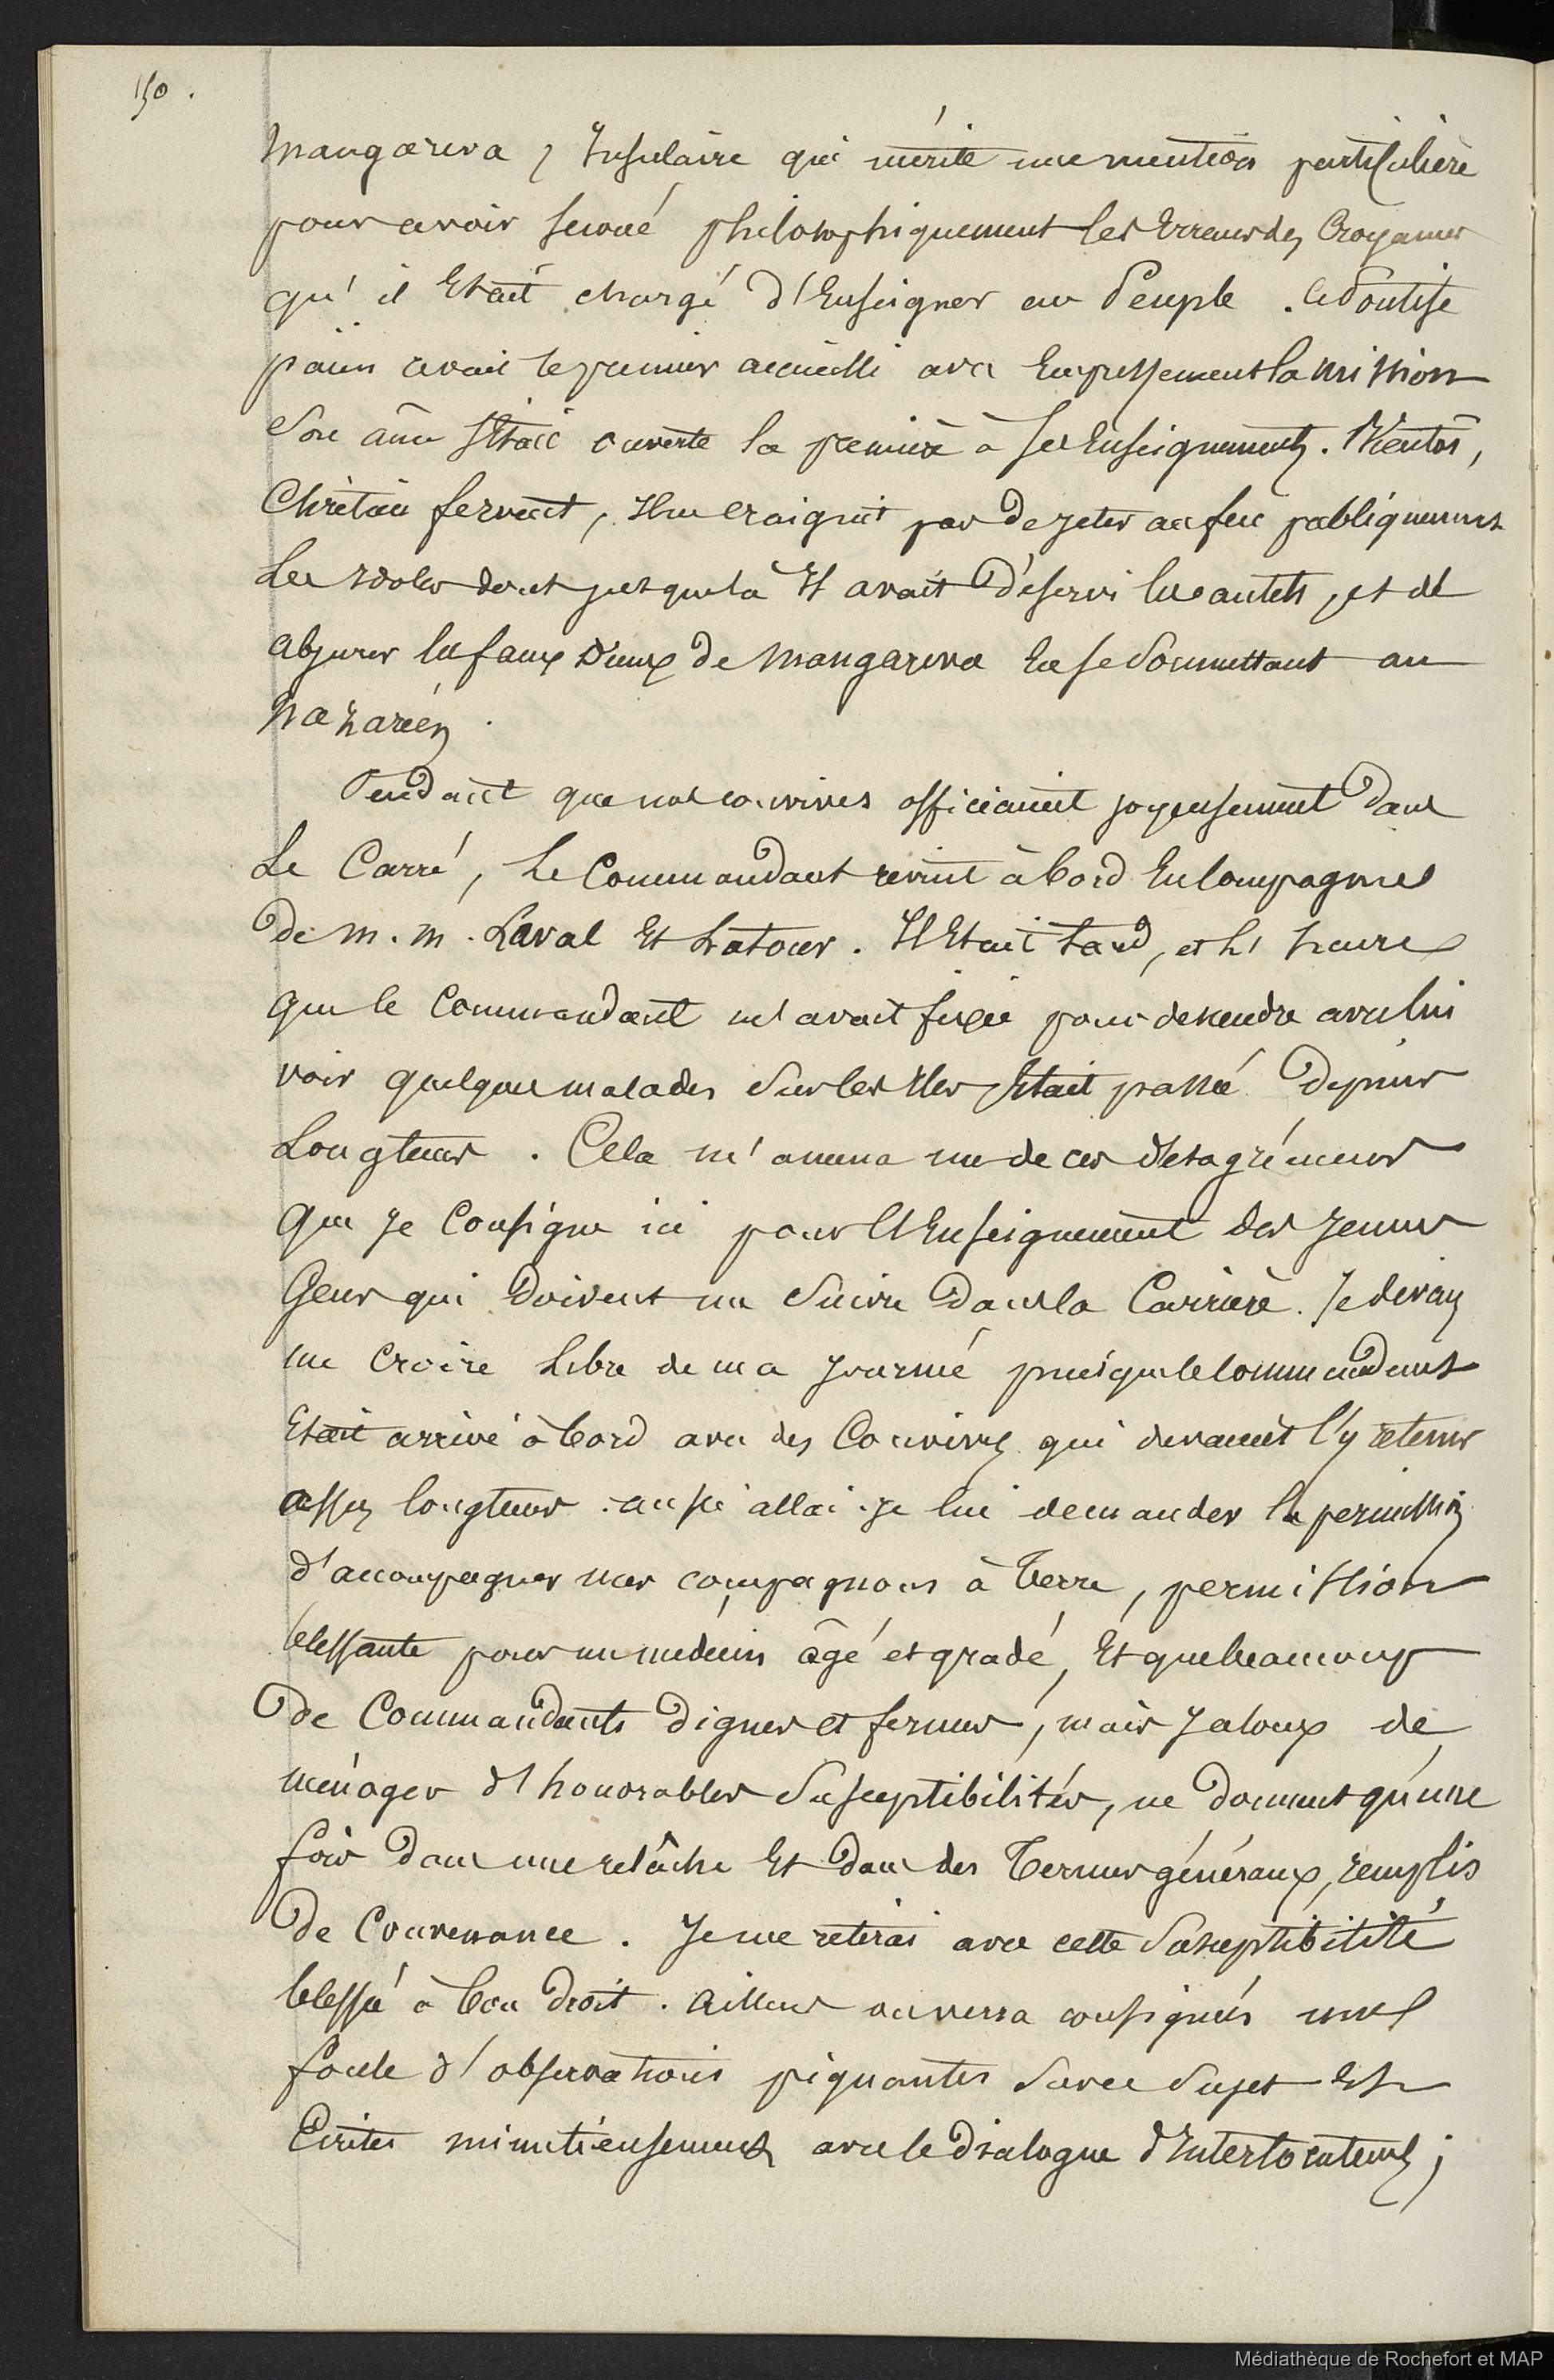 150.
Mangareva, Insulaire qui mérite une mention particulière
pour avoir secoué philosophiquement les Erreurs des Croyances
qu'il Etait chargé d'Enseigner au Peuple. Ce Pontife
païen avait le premier accueilli avec Empressement la mission
Son âme s'Etait ouverte la première à ses Enseignements. Bientôt,
Chrétien fervent, Il ne craignit pas de jeter au feu publiquement
Les Idoles dont jusque là Il avait Desservi les autels, et de
abjurer les faux Dieux de Mangareva En se Soumettant au
Nazaréen.
Pendant que nos convives officiaient joyeusement Dans
Le Carré, Le Commandant revint à bord En Compagnie
De M. M. Laval Et Latour. Il Etait tard, et l'heure
que le Commandant m'avait fixée pour descendre avec lui
voir quelques malades Sur les Iles Etait passée Depuis
Longtems. Cela m'amena un de ces désagrémens
que Je Consigne ici pour l'Enseignement des Jeunes
Gens qui Doivent me Suivre Dans la Carrière. Je devais
me Croire Libre de ma Journée puisque le Commandant
Etait arrivé à bord avec des Convives qui devaient l'y retenir
assez longtems. aussi allai-je lui demander la permission
d'accompagner mes compagnons à Terre, permission
blessante pour un médecin âgé et gradé, Et que beaucoup
De Commandants Dignes et fermes, mais Jaloux de
ménager d'honorables Susceptibilités, ne Donnent qu'une
fois Dans une relâche Et Dans des Termes généraux, remplis
De Convenance. Je me retirai avec cette Susceptibilité
blessée à bon Droit. Ailleurs on verra consignées une
foule d'observations piquantes Sur ce Sujet Et
Ecrites minutieusement avec le Dialogue d'Interlocuteurs;
Médiathèque de Rochefort et MAP